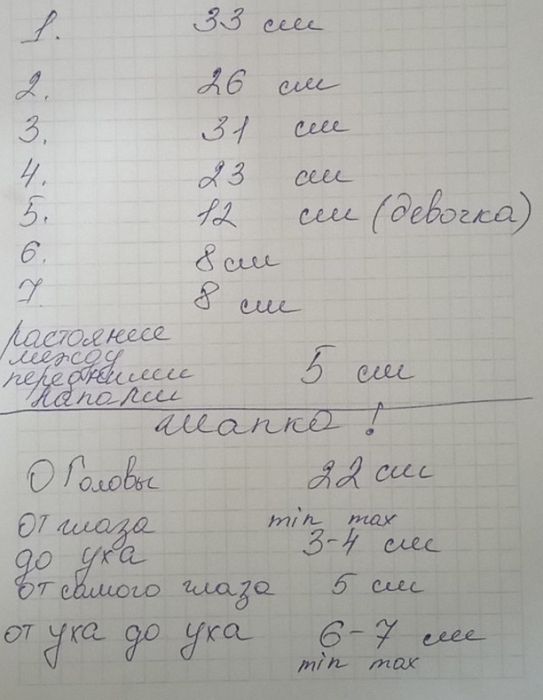 1. 33 см
2. 26 см
3. 31 см
4. 23 см
5. 12 см (девочка)
6. 8 см
7. 8 см
растояние
между
передними 5 см
лапами
шапка!
О Головы 22 см
от глаза min max
до уха 3-4 см
от самого глаза 5 см
от уха до уха 6-7 см
min max